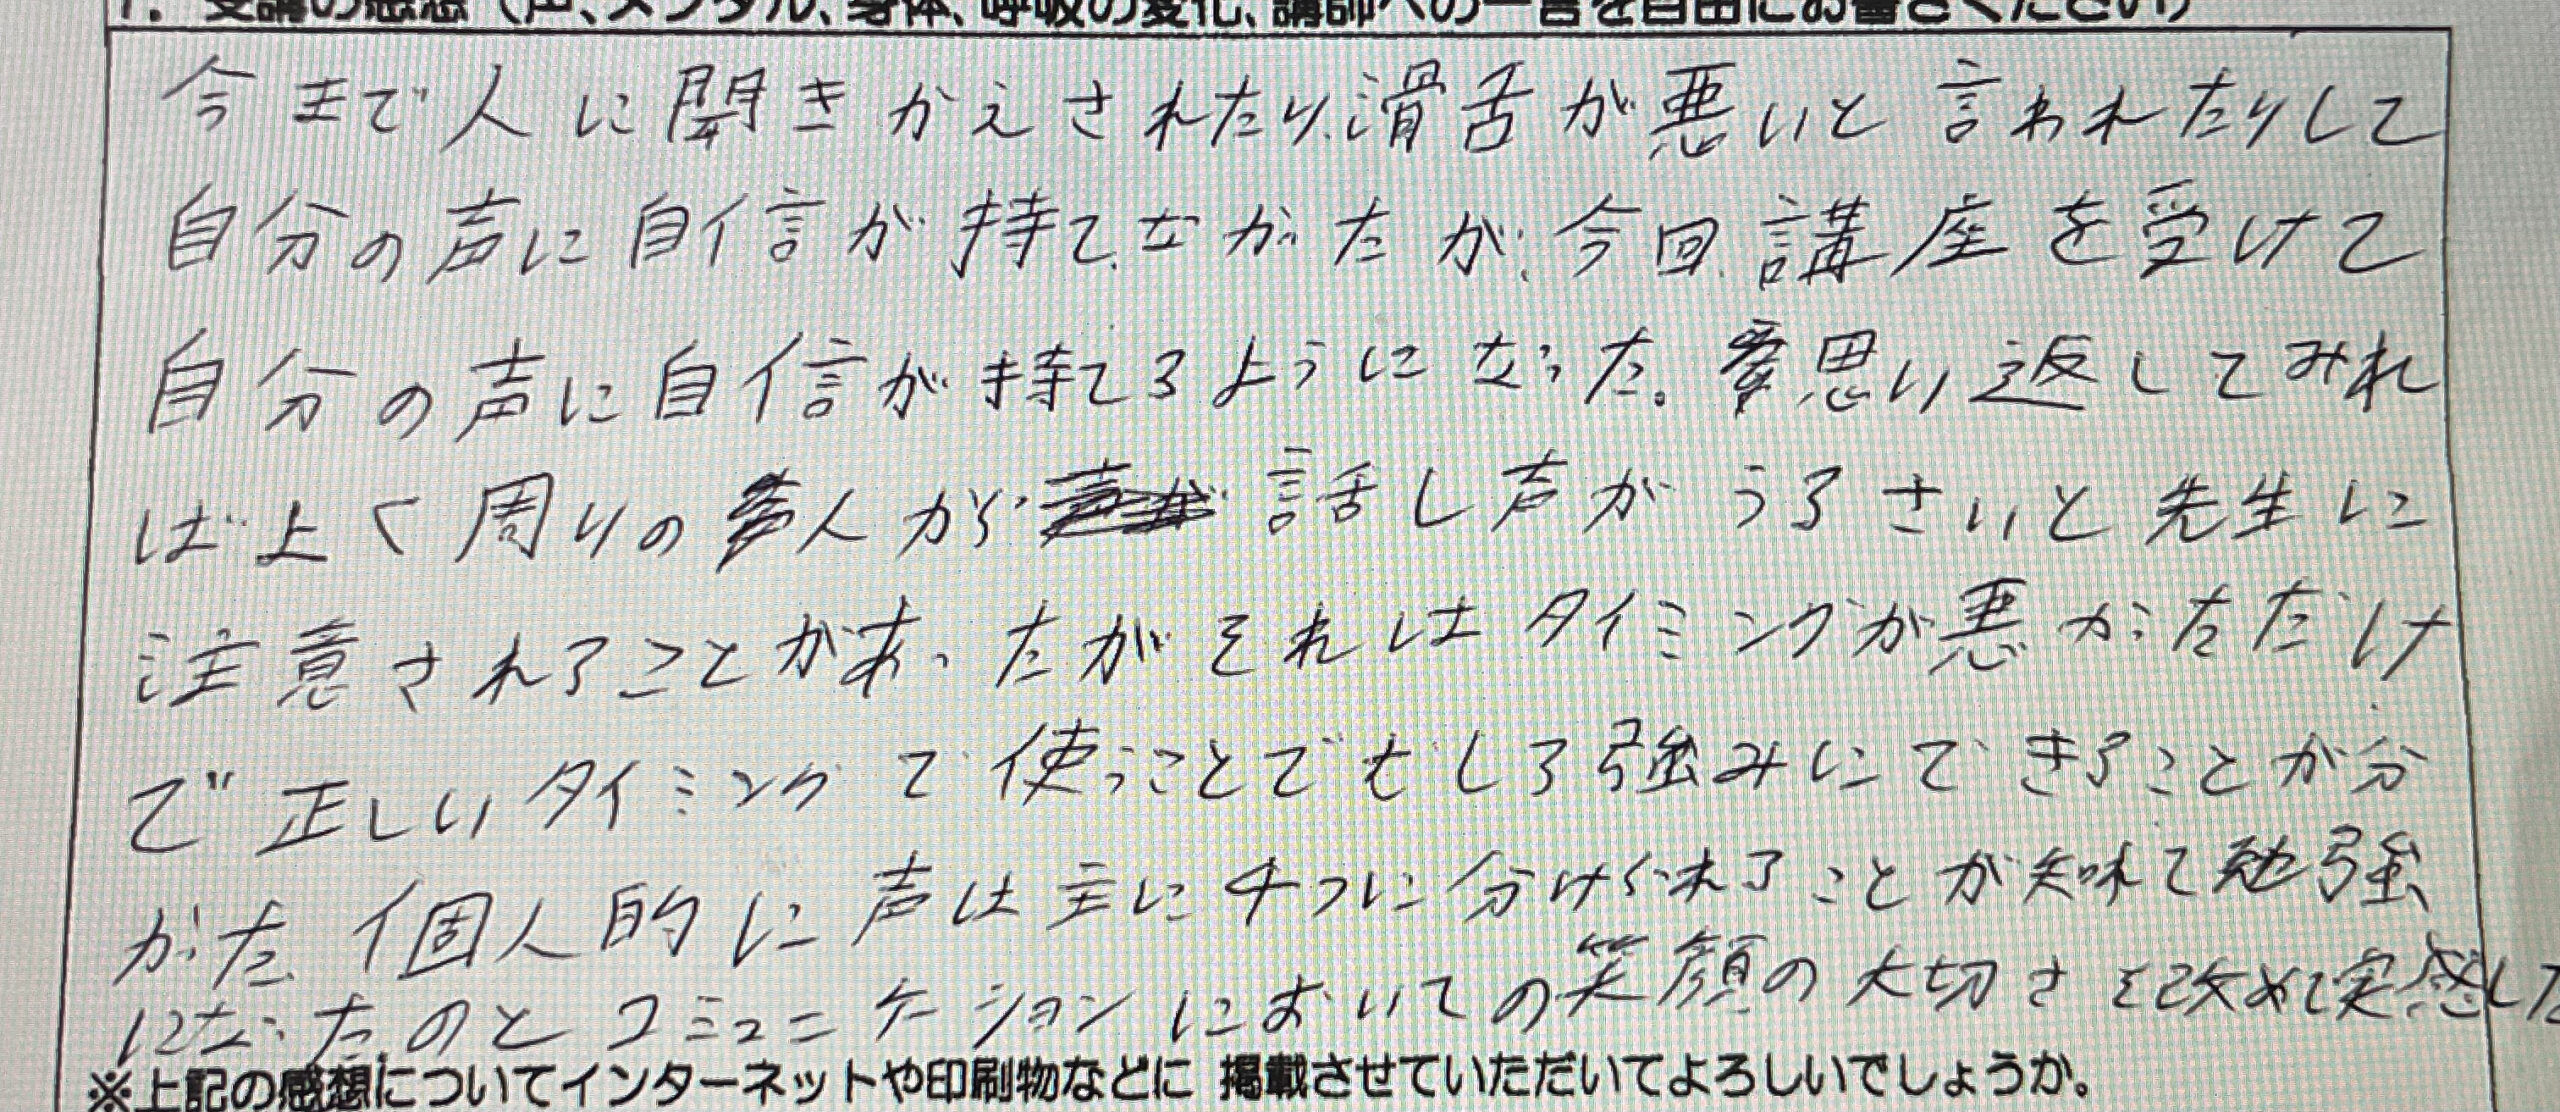 1. 受講の感想（声、メンタル、身体、呼吸の変化、講師への一言を自由にお書きください）
今まで人に聞きかえされたり、滑舌が悪いと言われたりして
自分の声に自信が持てなかったが、今回、講座を受けて
自分の声に自信が持てるようになった。思い返してみれ
ば上く周りの人から話し声がうるさいと先生に
注意されることがあったがそれはタイミングが悪かっただけ
で正しいタイミングで使うことでむしろ強みにできることが分
かった。個人的に声は主に4つに分けられることが知れて勉強
になったのとコミュニケーションにおいての笑顔の大切さを改めて実感した
※上記の感想についてインターネットや印刷物などに 掲載させていただいてよろしいでしょうか。